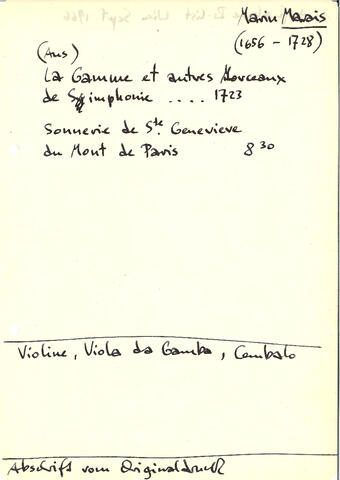 Marin Marais
(1656 - 1728)
(Aus)
La Gamme et autres Morceaux
de Symphonie .... 1723
Sonnerie de Ste. Genevieve
du Mont de Paris 8 30
Violine, Viola da Gamba, Cembalo
Abschrift vom Originaldruck